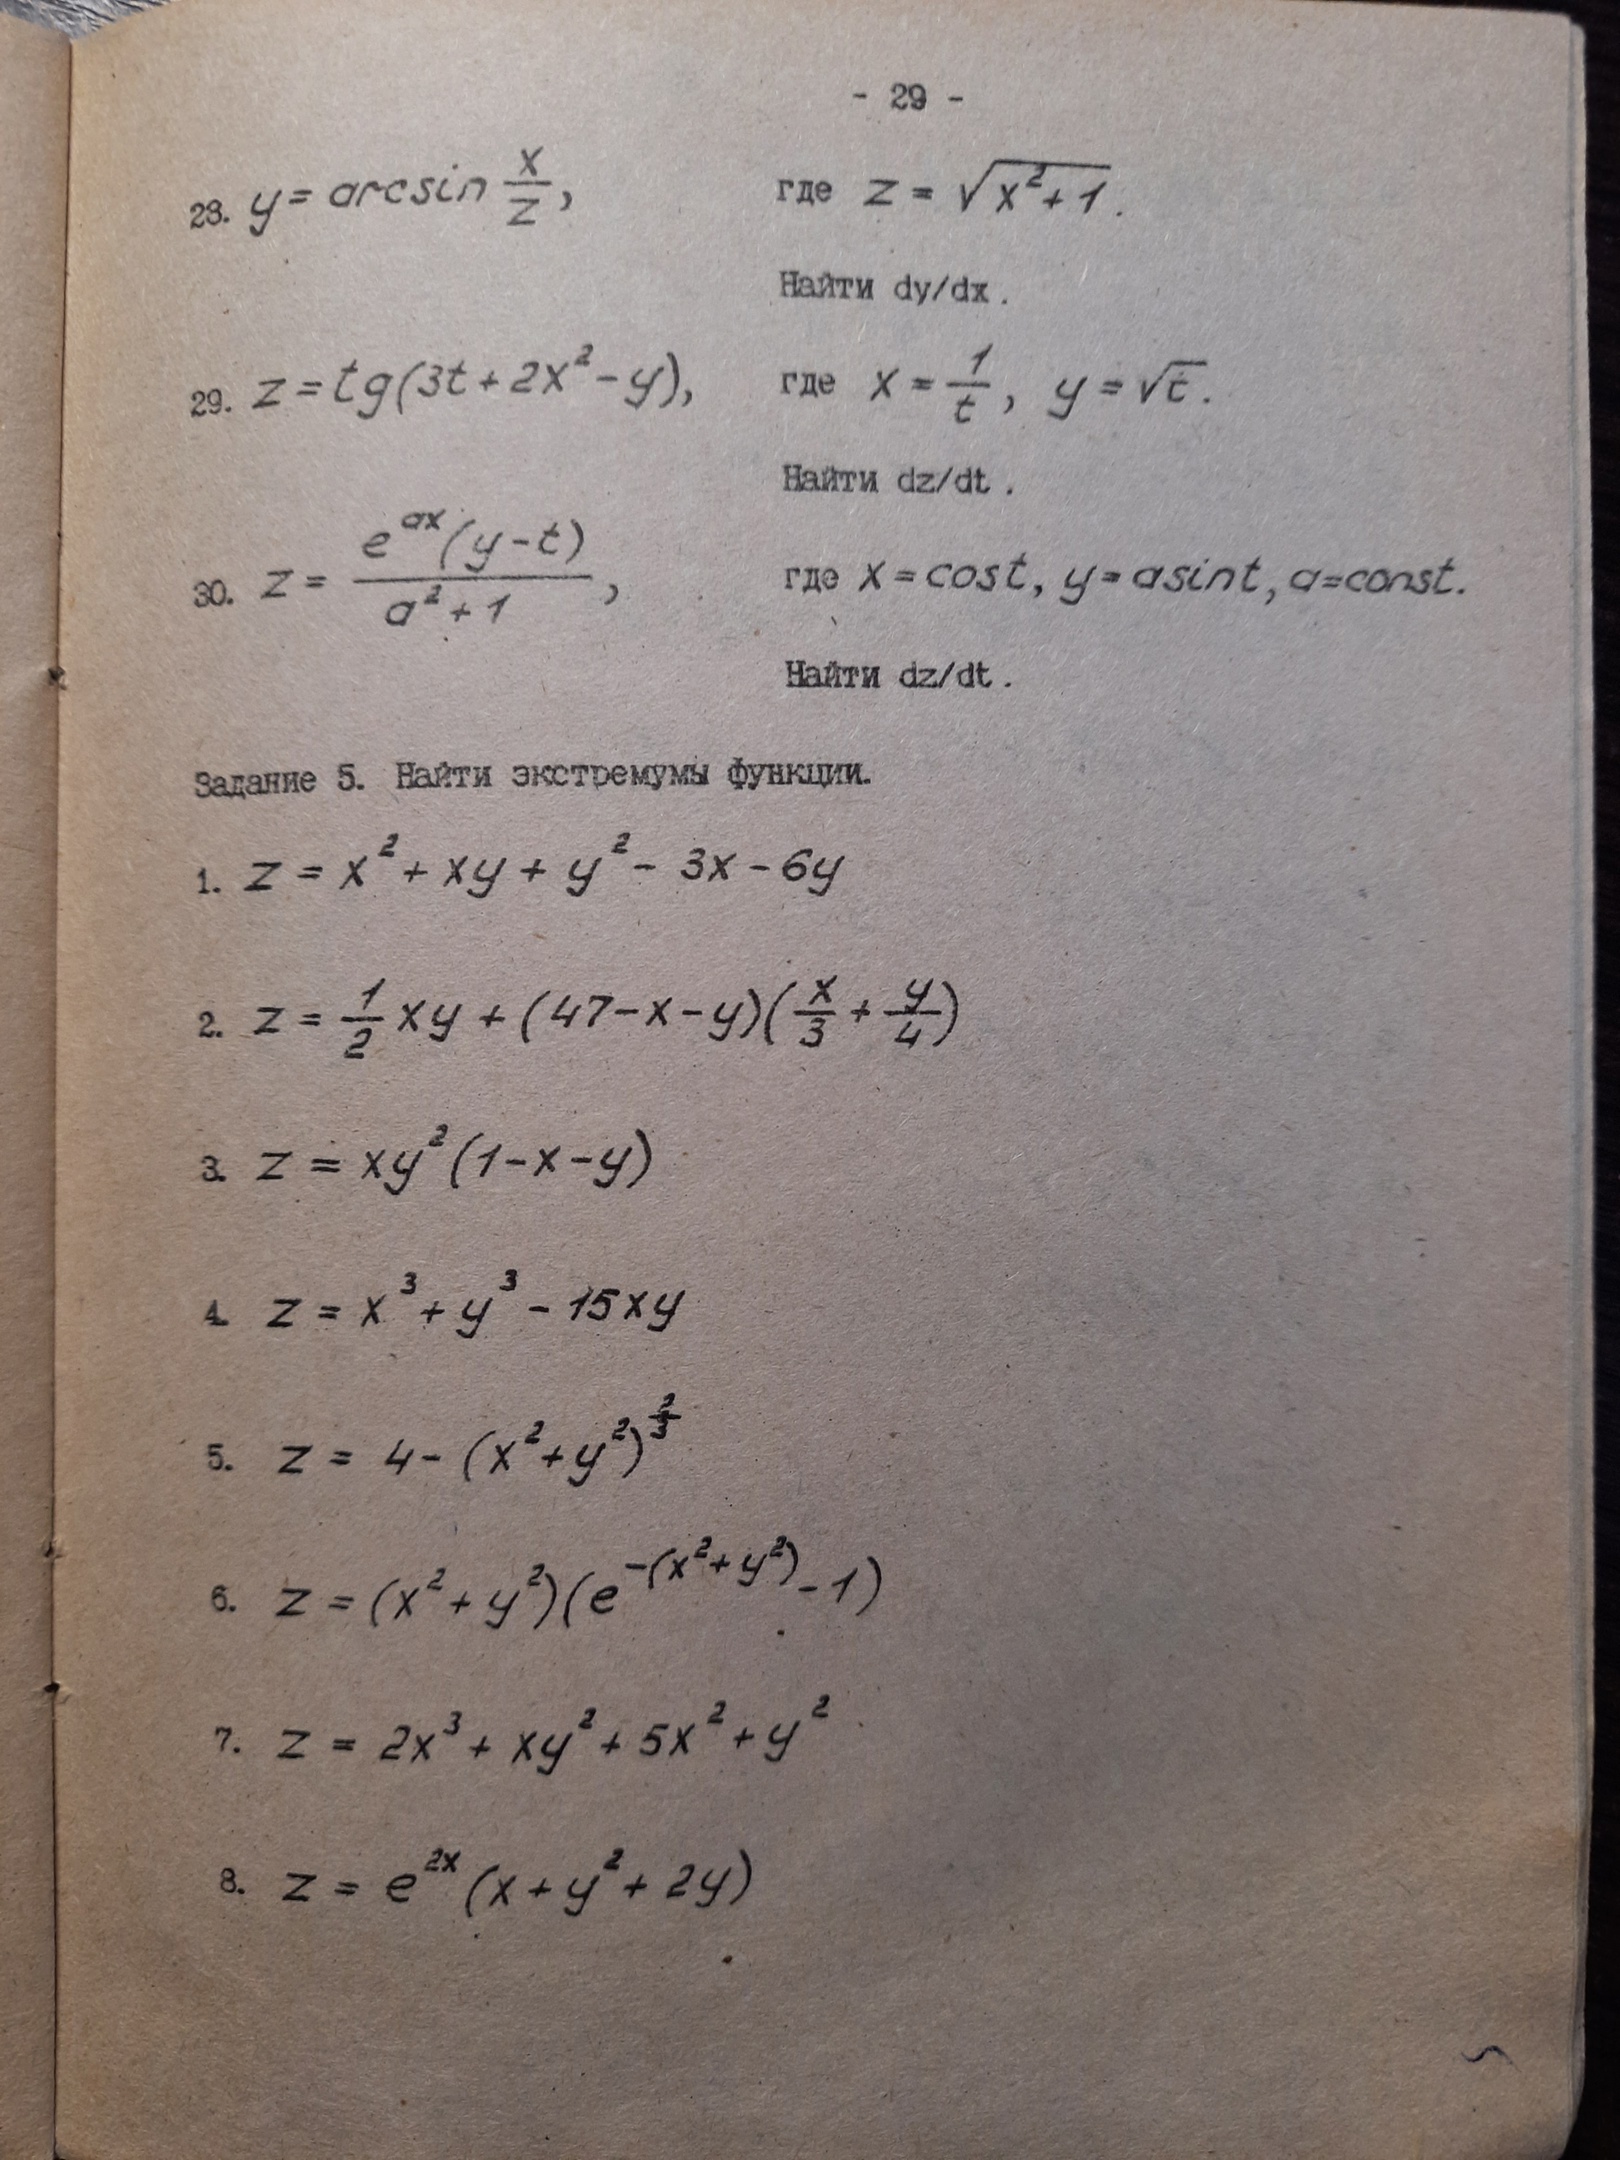 - 29 -
28. y = arcsin x/z, где z = √(x²+1).
Найти dy/dx.
29. z = tg(3t + 2x² - y), где x = 1/t, y = √t.
Найти dz/dt.
30. z = e^{ax}(y-t)/(a²+1), где x = cost, y = asint, a = const.
Найти dz/dt.
Задание 5. Найти экстремумы функции.
1. z = x² + xy + y² - 3x - 6y
2. z = 1/2 xy + (47-x-y)(x/3 + y/4)
3. z = xy²(1-x-y)
4. z = x³ + y³ - 15xy
5. z = 4 - (x² + y²)^{2/3}
6. z = (x² + y²)(e^{-(x²+y²)} - 1)
7. z = 2x³ + xy² + 5x² + y²
8. z = e^{2x}(x + y² + 2y)